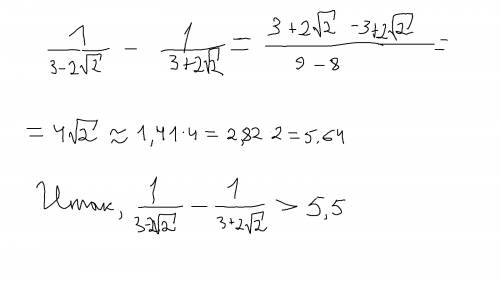 1/(3-2√2) - 1/(3+2√2) = (3+2√2 -3+2√2)/(9-8) =
= 4√2 ≈ 1,41·4 = 2,82 2 = 5.64
Итак, 1/(3-2√2) - 1/(3+2√2) > 5,5